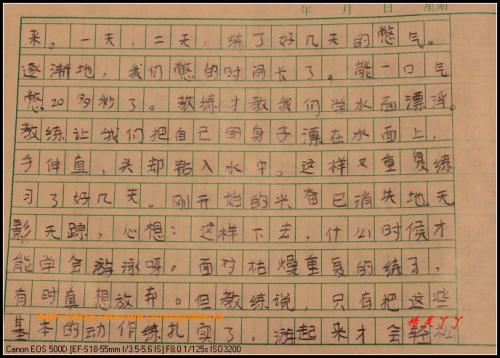 年 月 日 星期
来。一天，二天，练了好几天的憋气。
逐渐地，我们憋的时间长了，能一口气
憋20多秒了。教练才教我们学水面漂浮。
教练让我们把自己的身子漂在水面上，
手伸直，头却钻入水中。这样又重复练
习了好几天。刚开始的兴奋已消失地无
影无踪，心想：这样下去，什么时候才
能学会游泳呀。面对枯燥重复的练习，
有时真想放弃。但教练说，只有把这些
基本的动作练扎实了，游起来才会轻松
精灵丫丫
Canon EOS 500D [EF-S18-55mm f/3.5-5.6 IS] F8.0 1/125s ISO3200